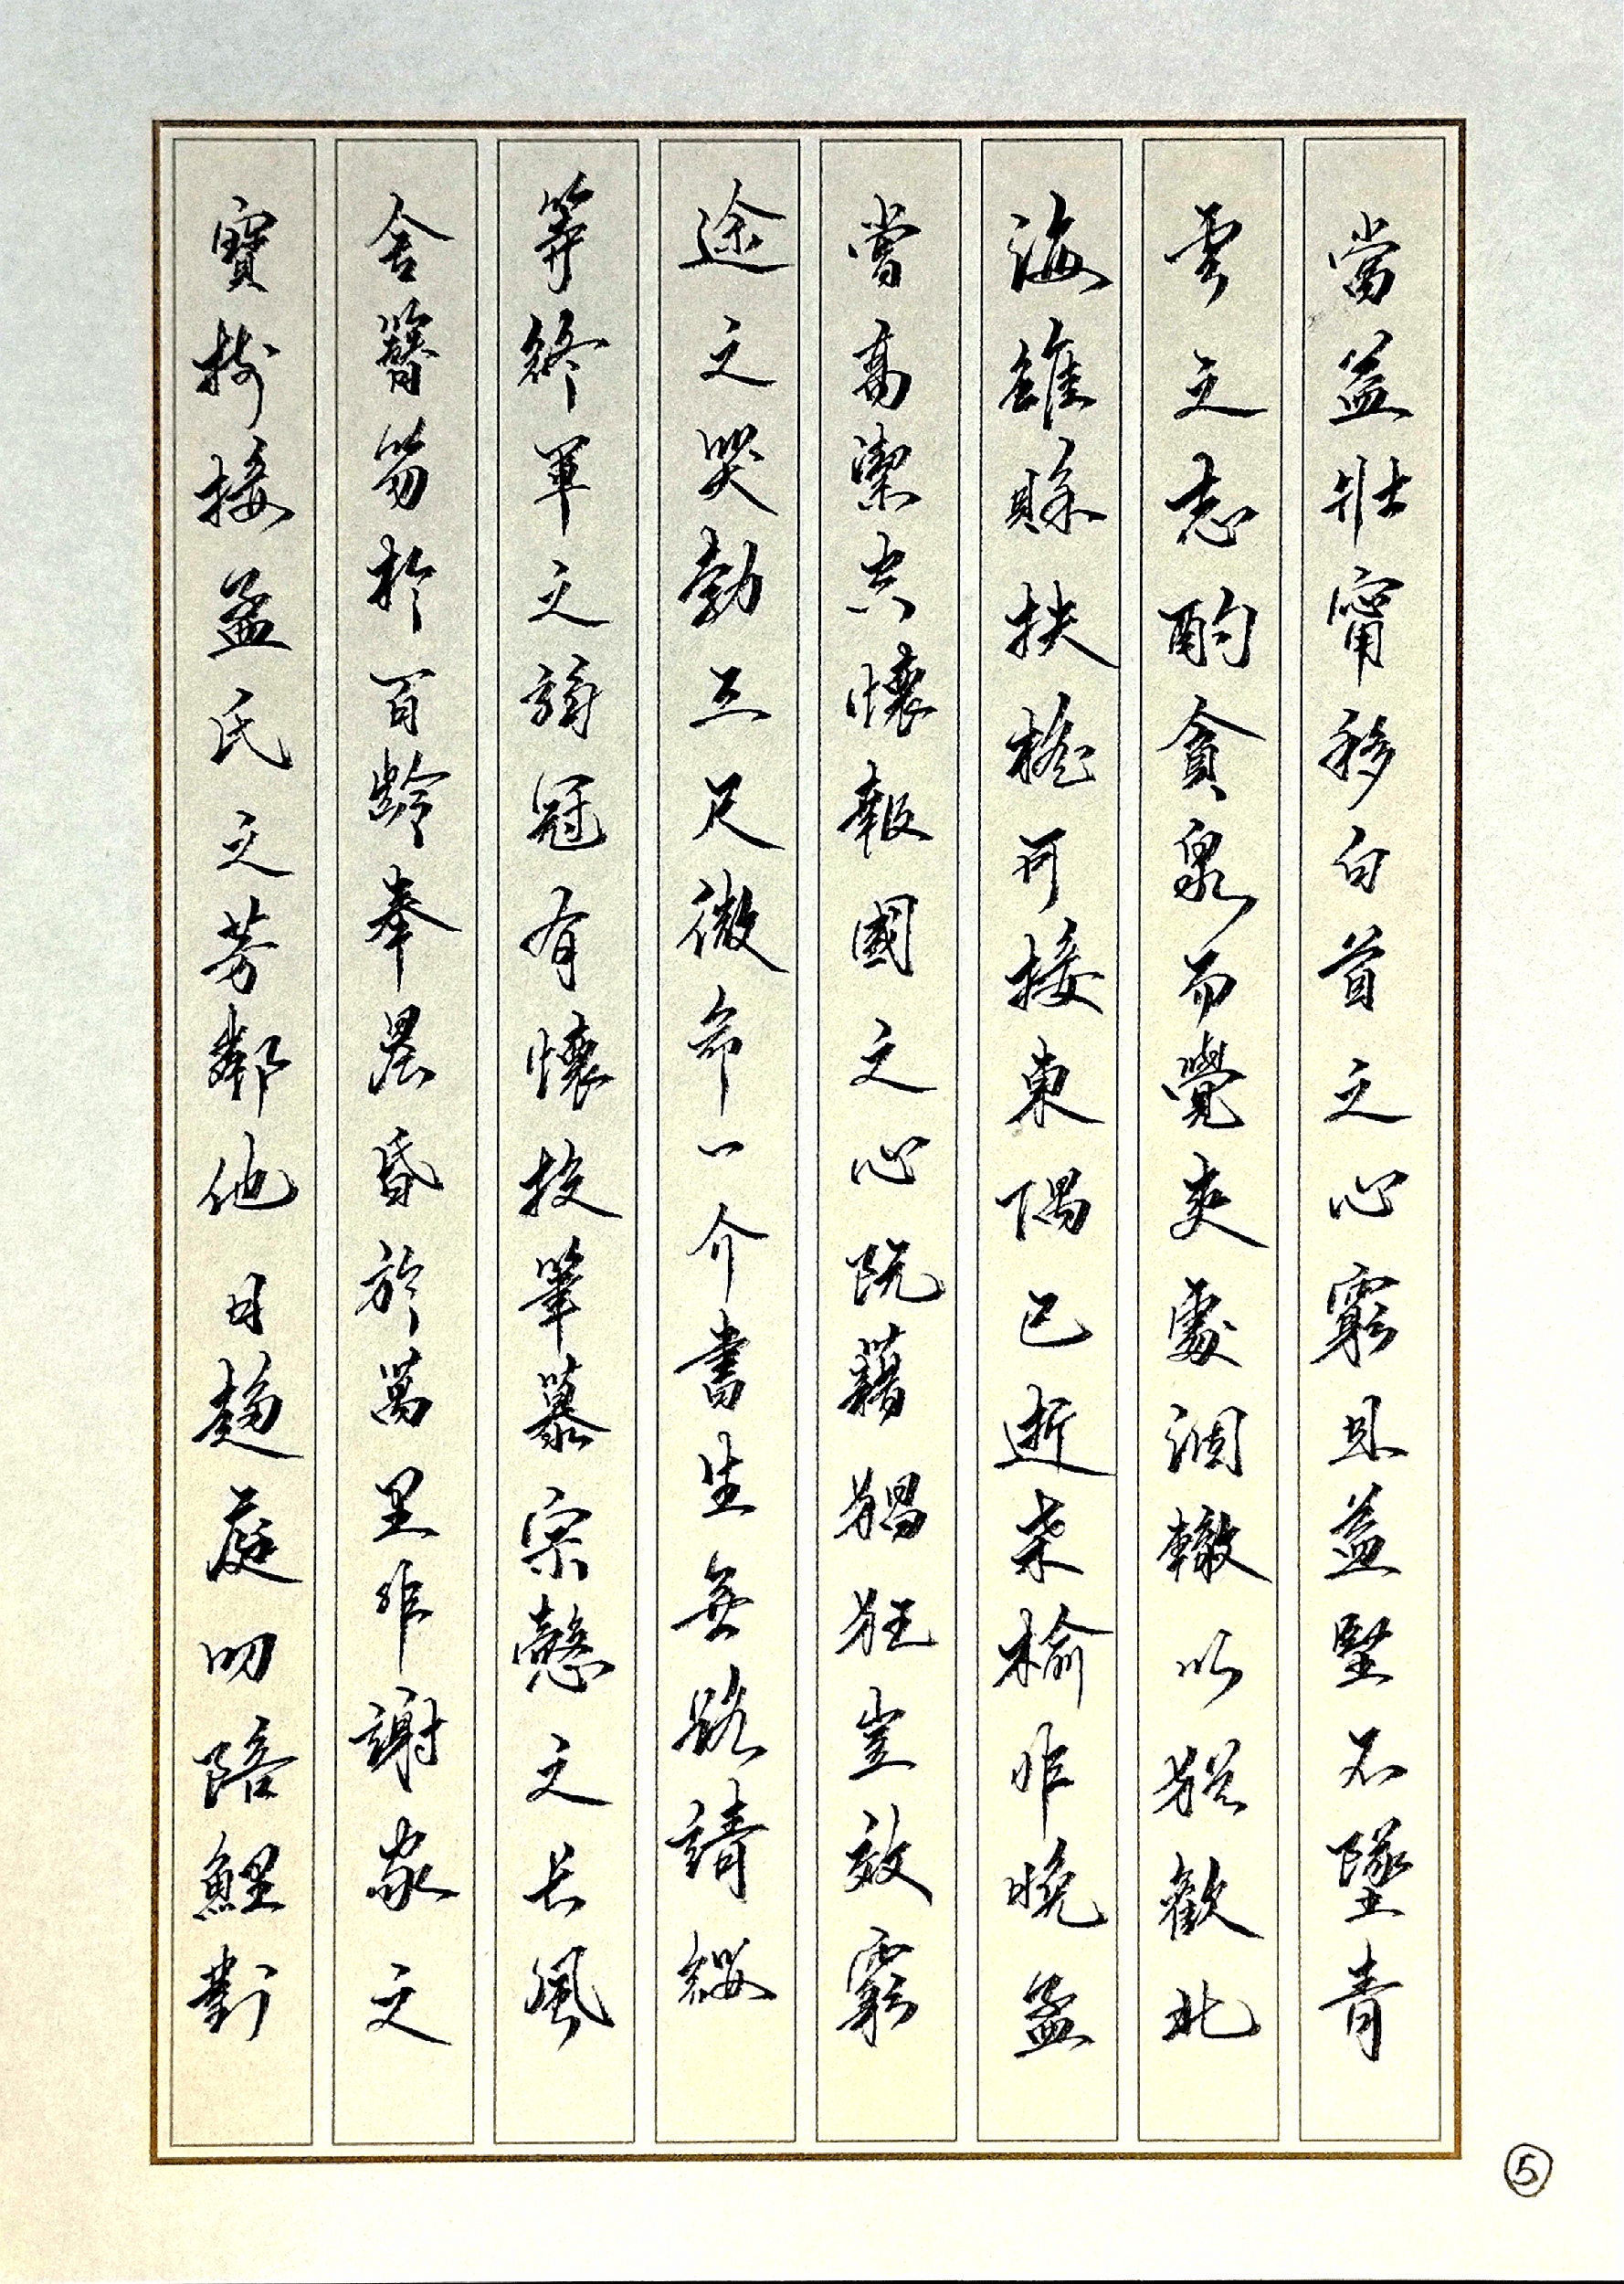 當益壯甯移白首之心窮且益堅不墜青
雲之志酌貪泉而覺爽處涸轍以猶歡北
海雖賒扶搖可接東隅已逝桑榆非晚孟
嘗高潔空懷報國之心阮藉猖狂豈效窮
途之哭勃三尺微命一介書生無路請纓
等終軍之弱冠有懷投筆慕宗愨之長風
舍簪笏於百齡奉晨昏於萬里非謝家之
寶樹接孟氏之芳鄰他日趨庭叨陪鯉對
⑤